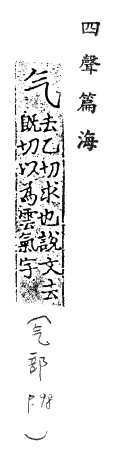 四聲篇海
气去乙切求也說文去
既切以為雲氣字
(气部
P.98)